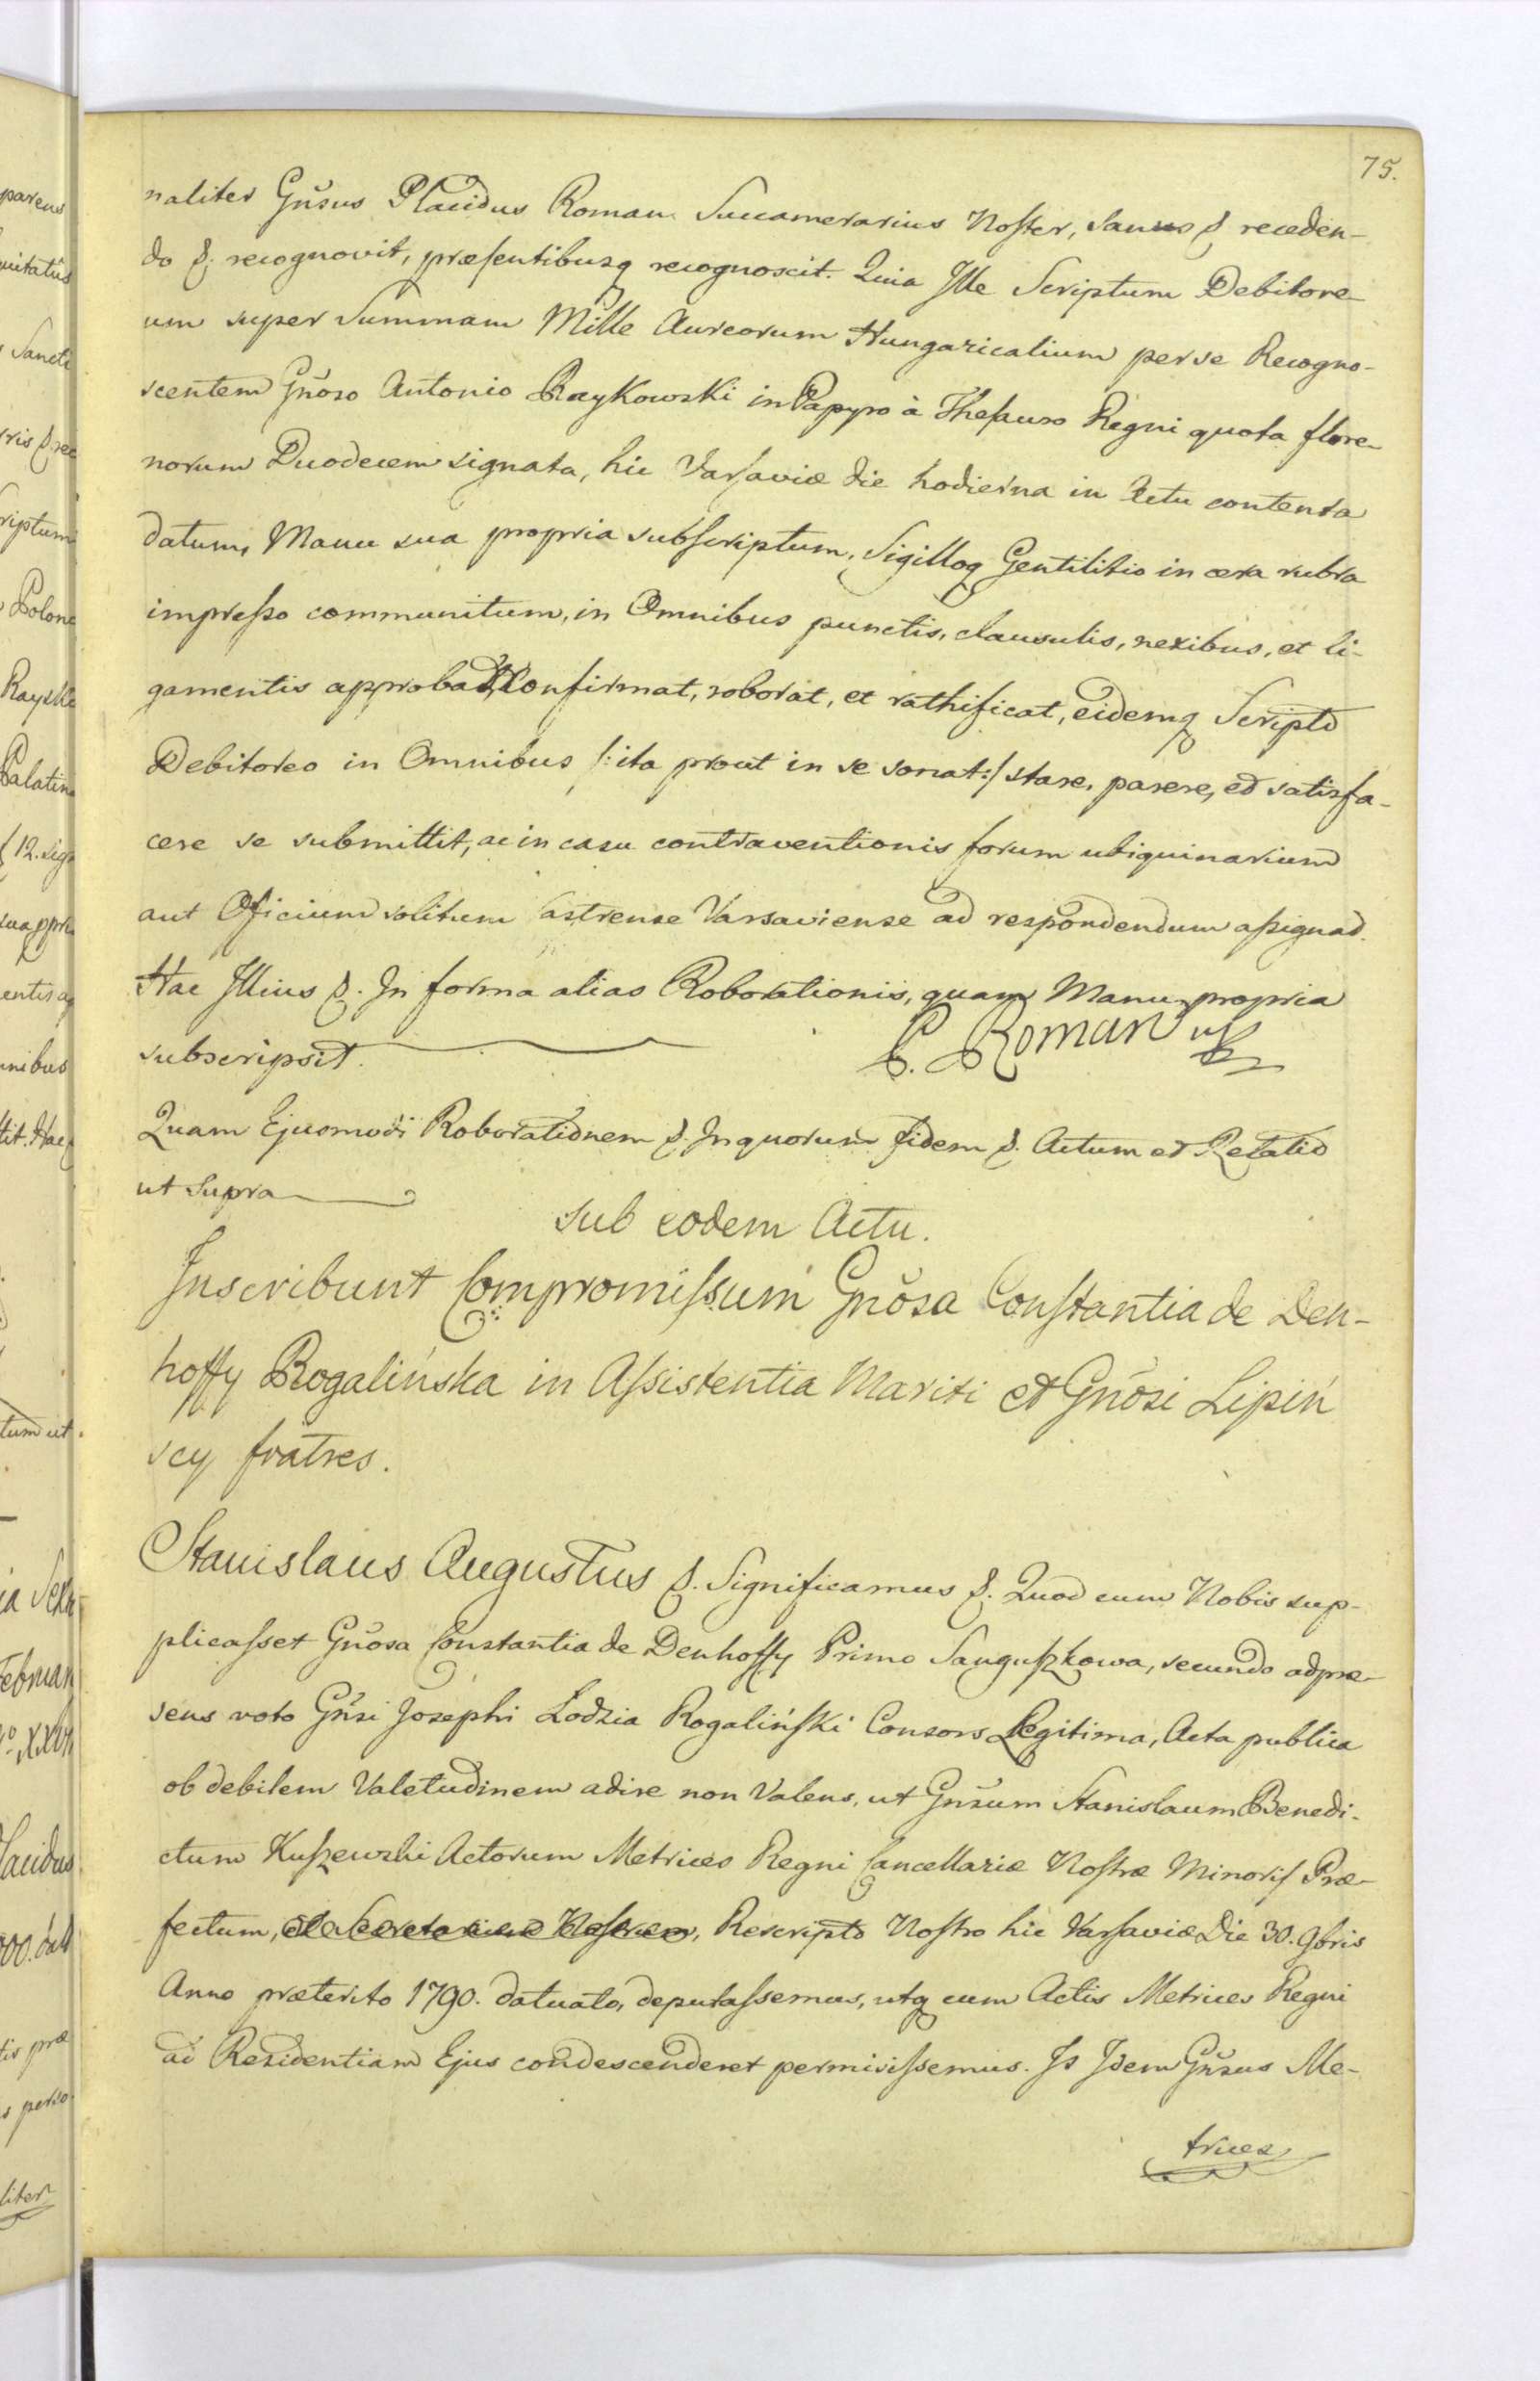 75.
naliter Gnsus Placidus Roman Succamerarius Noster, Sanus &. receden-
do &. recognovit, præsentibusq recognoscit. Quia Ille Scriptum Debitore-
um super Summam Mille Aureorum Hungaricalium per se Recogno-
scentem Gnoso Antonio Raykowski in Papyro à Thesauro Regni quota flore-
norum Duodecem signata, hic Varsaviæ die hodierna in Actu contenta
datum, Manu sua propria subscriptum, Sigilloq Gentilitio in cera rubra
impresso communitum, in Omnibus punctis, clausulis, nexibus, et li-
gamentis approbat, Confirmat, roborat, et rathificat, eidemq Scripto
Debitoreo in Omnibus /: ita prout in se sonat :/ stare, parere, et satisfa-
cere se submittit, ac in casu contraventionis forum ubiquinarium
aut Oficium solitum Castrense Varsaviense ad respondendum assignat.
Hac Illius &. In forma alias Roborationis, quam Manu propria
subscripsit.
P. Roman
Quam Ejusmodi Roborationem &. In quorum fidem &. Actum et Relatio
ut Supra
Sub eodem Actu.
Inscribunt Compromissum Gnosa Constantia de Den-
hoffy Rogalińska in Assistentia Mariti et Gnosi Lipiń
scy fratres.
Stanislaus Augustus &. Significamus &. Quod cum Nobis sup-
plicasset Gnosa Constantia de Denhoffy Primo Sanguszkowa, secundo adpræ-
sens voto Gnsi Josephi Lodzia Rogaliński Consors Legitima, Acta publica
ob debilem Valetudinem adire non Valens, ut Gnsum Stanislaum Benedi-
ctum Kuszewski Actorum Metrices Regni Cancellariæ Nostræ Minoris Præ-
fectum, et Secretarium Nostrum, Rescripto Nostro hic Varsaviæ Die 30. 9bris
Anno præterito 1790. datuato, deputassemus, utq cum Actis Metrices Regni
ad Residentiam Ejus condescenderet permisissemus. Is Idem Gnsus Me-
trices